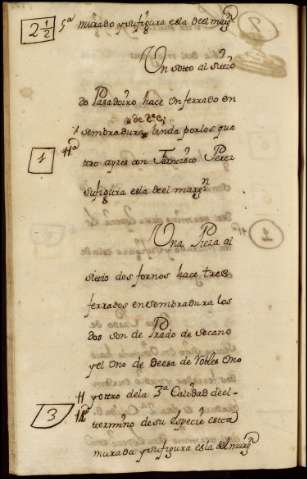 2 1/2
murado y su figura es la del marg.n
Un soto al sitio
do Pasadoiro hace un ferrado en
sembradura, linda por los qua
1
tro ayres con Francisco Perez
su figura es la del marg.n
Una Pieza al
sitio dos fornos hace tres
ferrados en sembradura los
dos son de Prado de secano
y el uno de Deesa de robles uno
y otro de la 3.a Calidad de el
3
termino de su especie esta
murada y su figura es la del marg.n